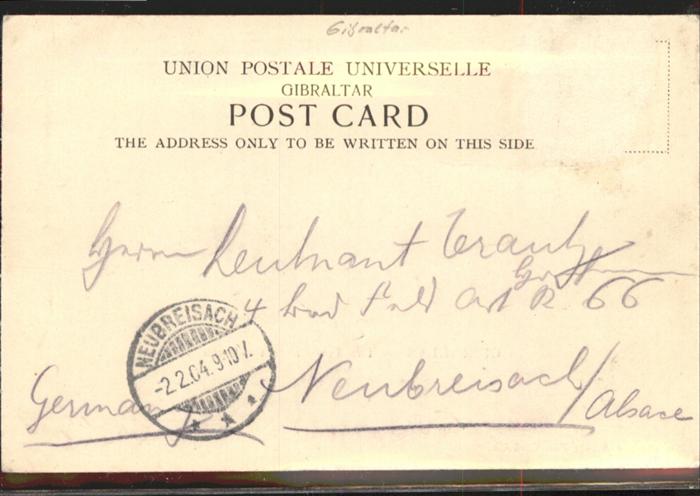 Gibraltar
UNION POSTALE UNIVERSELLE
GIBRALTAR
POST CARD
THE ADDRESS ONLY TO BE WRITTEN ON THIS SIDE
Herrn Leutnant Trautz
4 Bad Feld Art R 66
NEUBREISACH
-2.2.04.9-10V.
Germany Neubreisach/Alsace